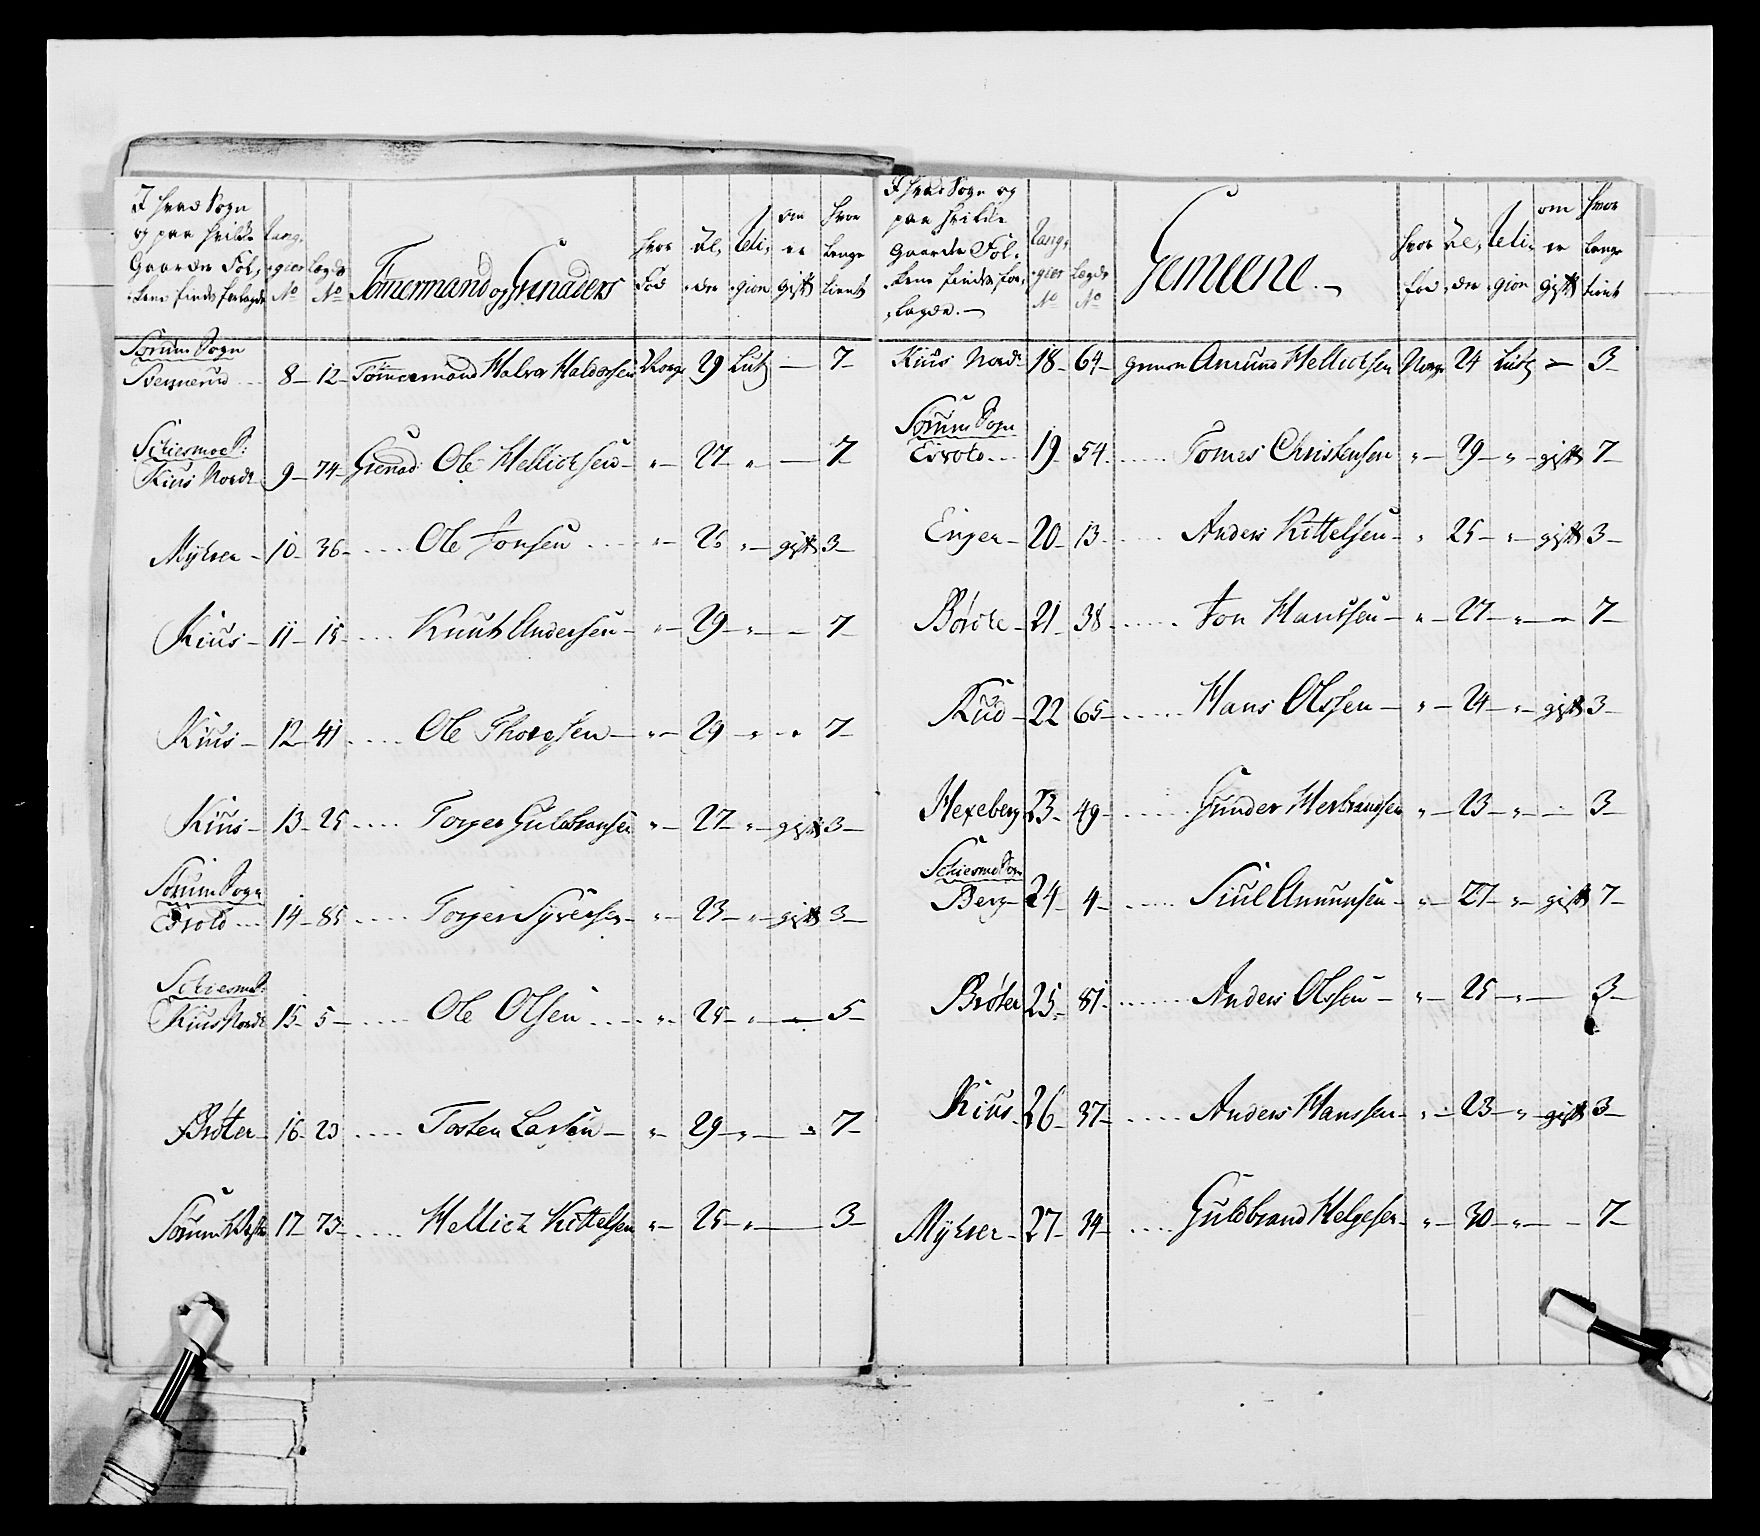 I hvad Sogn
og paa hvilke
Gaarde Fol,
,kene findes forlagde
Rang,
,gier
No
Lægds
No
Tømermand og Grenaders
hvor
Fød
Al,
,der
Reli,
,gion
om
er
Gift
hvor
længe
tient
Sørum Sogn
Svennerud ... 8 – 12 – Tømmermand Halvor Haldorsen Norge 29 Luth – 7 –
Schiesmoe S:
Kius Nordr – 9 – 74 – Grenad: Ole Hellichsen – " – 27 " – – 7
Myhrer – 10 – 36 – .... Ole Jonsen .... " – 25 " – gift 3 –
Kius – 11 – 15 .... Knuth Andersen – " – 29 – " – – 7
Kius – 12 – 41 .... Ole Thoresen – " – 29 – " – " 7 –
Kius – 13 – 25 .... Torger Guldbransen " – 27 – " – gift 3 –
Sørum Sogn
Eivold ... 14 – 85 .... Torger Syversen – " – 23 – " – gift 3 –
Schiesmoe S:
Kius Nordr 15 – 5 – .... Ole Olsen .... " – 25 – " – 5 –
Brøter – 16 – 23 .... Torsten Larsen – " – 29 – " – 7 –
Sørum Vestre 17 – 73 – .... Hellich Kittelsen " – 25 – " – 3 –
I hvad Sogn og
paa hvilke
Gaarde Fol,
,kene findes for,
,lagde. –
Rang,
,gier
No
Lægds
No
Gemeene. –
hvor
fød
Al,
,der
Reli,
,gion
om
er
gift
hvor
længe
tient
Kius Nordr 18 – 64 – gemeen Amund Hellichsen Norge 24 Luth – 3 –
Sørum Sogn
Eivold ... 19 – 54 ..... Tomes Christensen " – 29 – " – gift 7 –
Enger – 20 – 13 ..... Anders Kittelsen – " 25 – " – gift 3 –
Børche – 21 – 38 ...... Jon Hanssen – " – 27 – " – – 7 –
Kud – 22 65 – ..... Hans Olssen – " – 24 – " – gift 3 –
Hexeberg 23 – 49 – ..... Gunder Herbrandsen " – 23 – " – – 3 –
Schiesmo Sogn
Berg – 24 – 4 – ..... Siul Amundsen – " – 27 – " – gift 7 –
Brøter 25 – 81 ...... Anders Olssen – " – 25 – " – 3 –
Kius – 26 – 37 – .... Anders Hanssen – " – 23 – " – gift 3 –
Myhrer – 27 – 34 – .... Guldbrand Helgesen – " – 30 – " – – 7 –